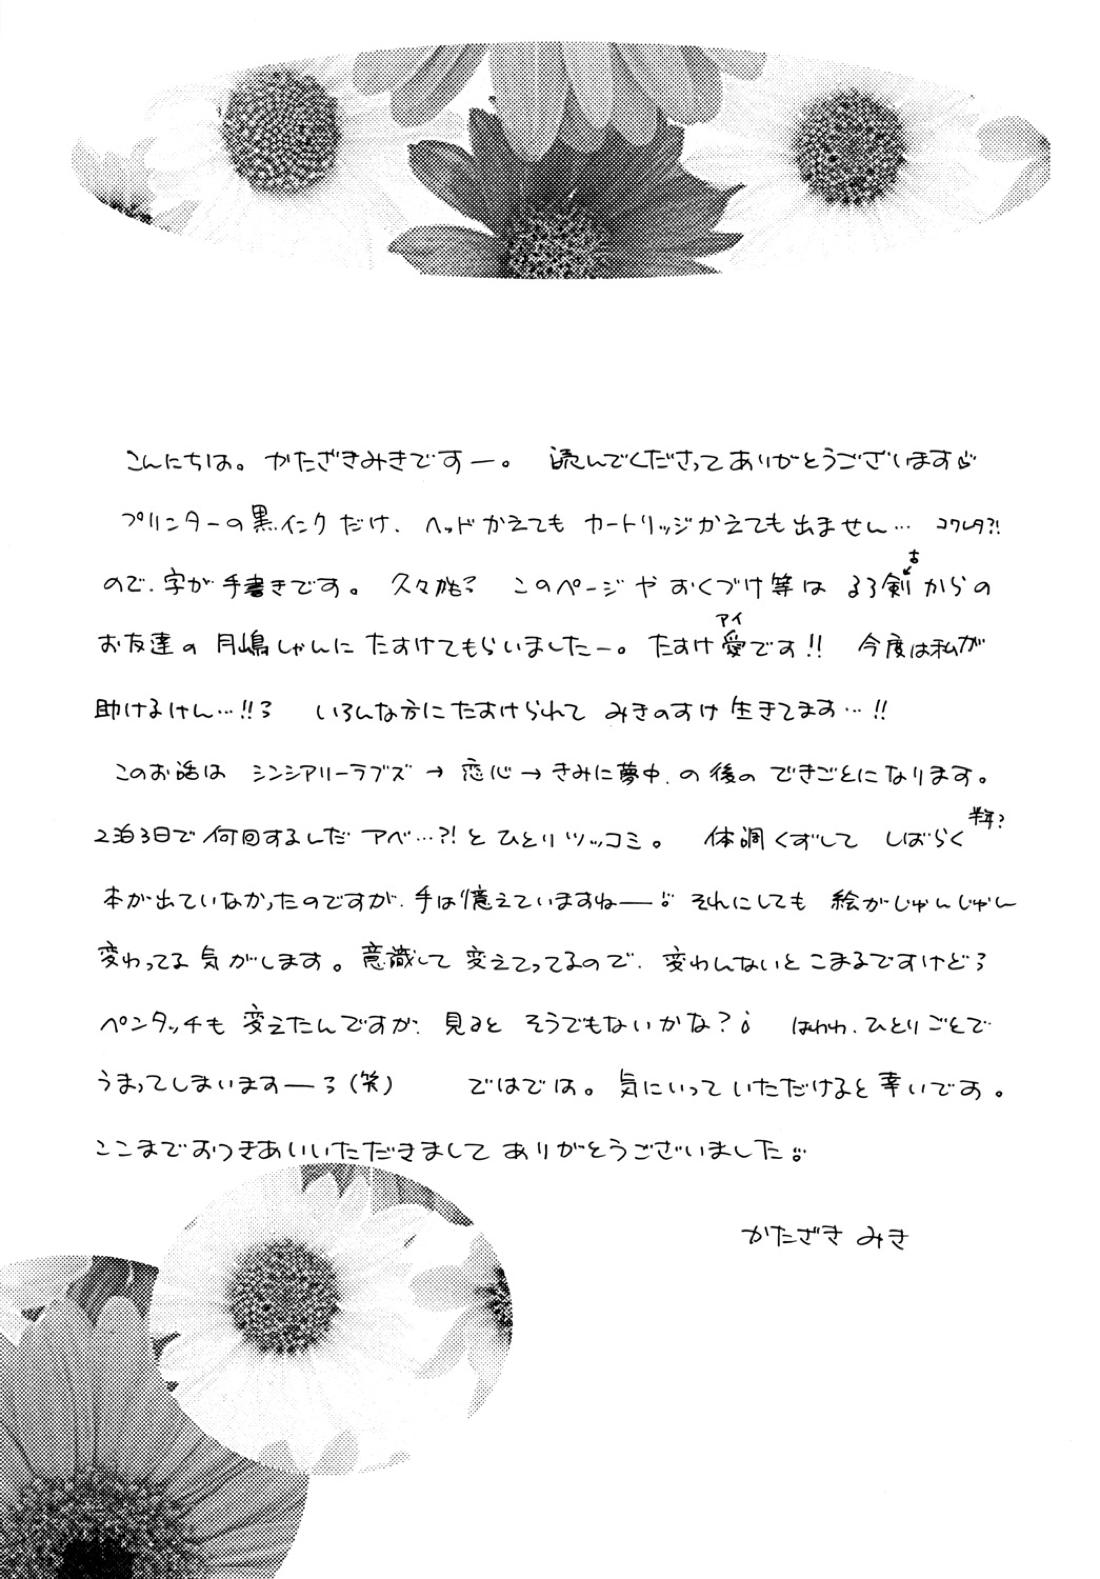 こんにちは。かたざきみきですー。 読んでくださってありがとうございます
プリンターの黒インクだけ、ヘッドかえても カートリッジかえても出ません… コワレタ?!
ので、字が手書きです。 久々かも? このページや おくづけ等は るろ剣からの
古
お友達の 月嶋しゃんに たすけてもらいましたー。 たすけ愛です!! 今度は私が
アイ
助けるけん…!!ろ いろんな方にたすけられて みきのすけ 生きてます…!!
このお話は シンシアリーラブズ → 恋心 → きみに夢中、の後の できごとになります。
2泊3日で 何回するしだ アベ…?!と ひとりツッコミ。 体調くずして しばらく
半年?
本が出ていなかったのですが、手は憶えていますねー それにしても 絵がじゅんじゅん
変わってる気がします。意識して 変えてってるので、変わんないと こまるですけどろ
ペンタッチも 変えたんですが、見ると そうでもないかな? はわわ、ひとりごとで
うまってしまいますーろ(笑) ではでは。気にいっていただけると幸いです。
ここまでおつきあいいただきまして ありがとうございました
かたざき みき